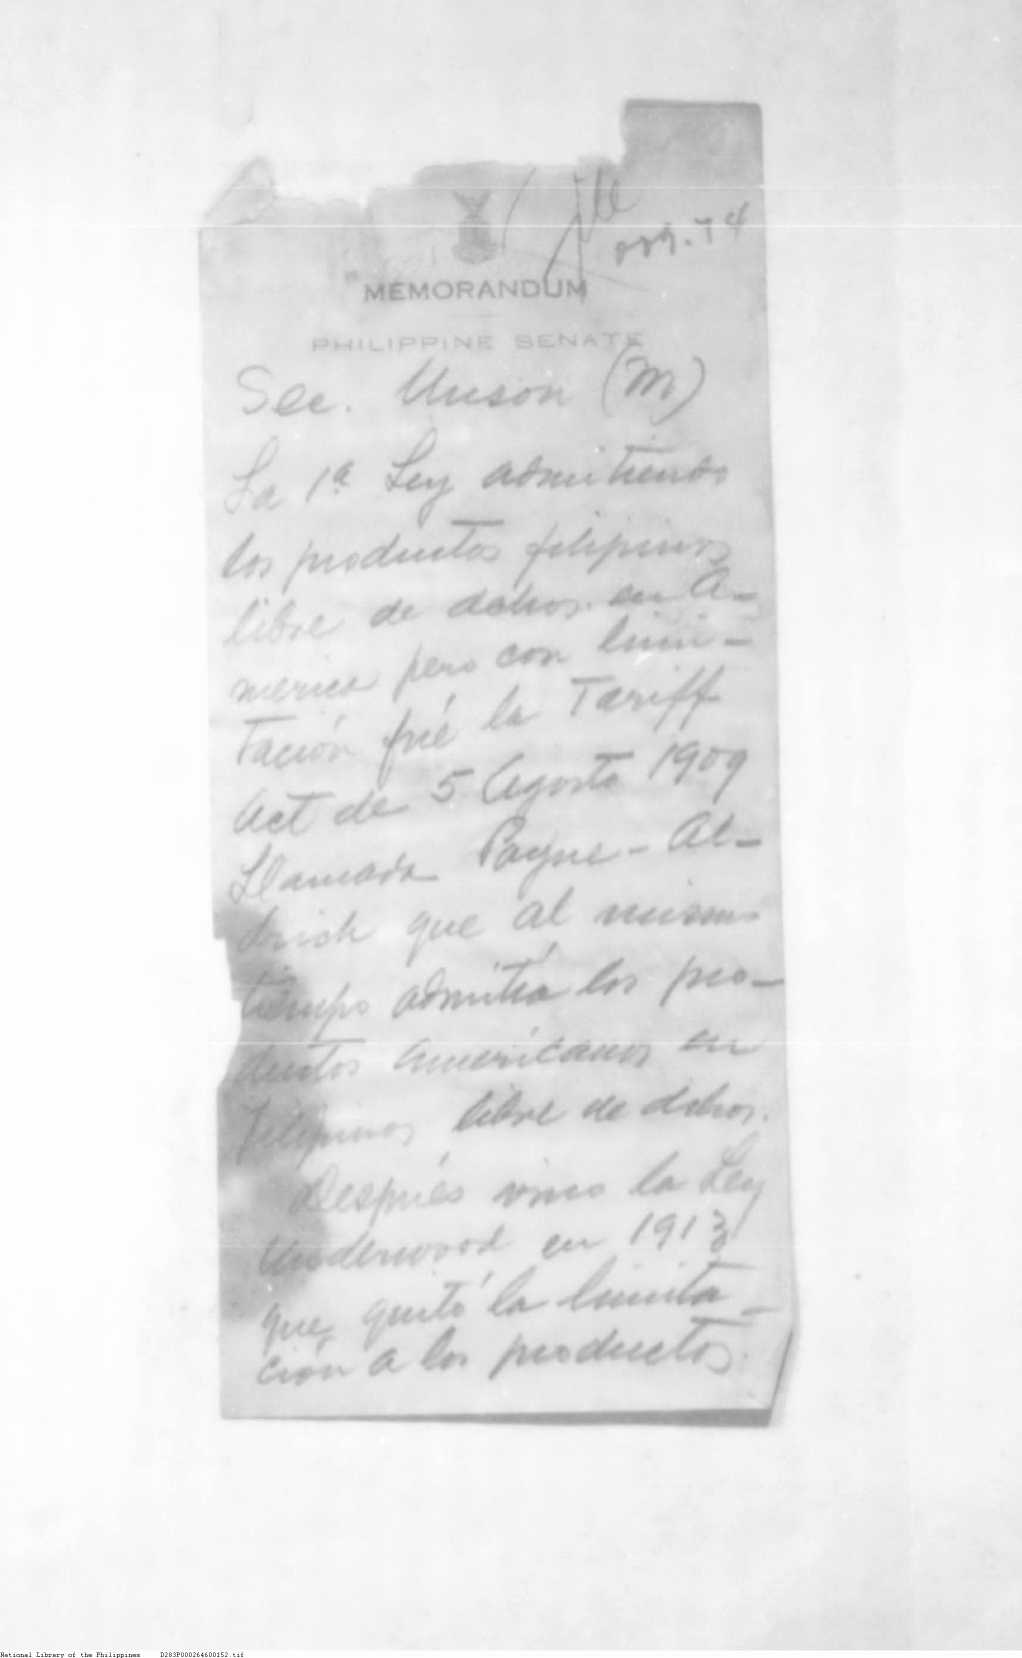 file
MEMORANDUM
PHILIPPINE SENATE
Sec. Unson (M)
La 1ª Ley admitiendo
los productos filipinos
libre de dchos. en A-
merica pero con limi-
tación fué la Tariff
Act de 5 Agosto 1909
Llamada Payne-Al-
drich que al mismo
tiempo admitía los pro-
ductos americanos en
Filipinas libre de dchos.
Después vino la Ley
Underwood en 1913
que quitó la limita-
ción a los productos.
National Library of the Philippines D283P000264600152.tif